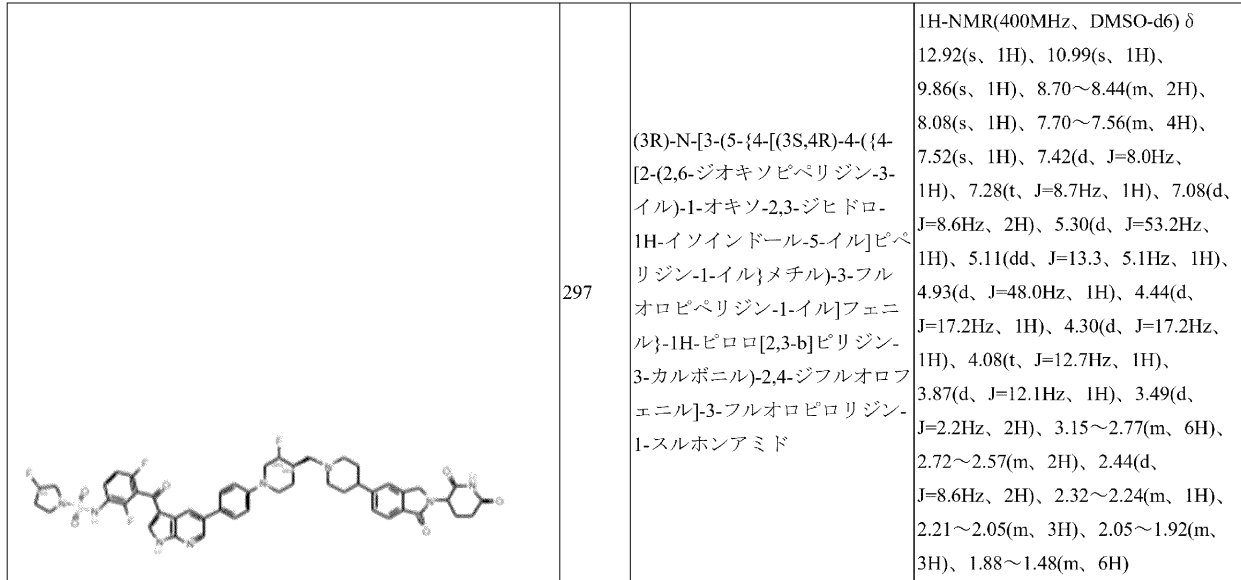 297
(3R)-N-[3-(5-{4-[(3S,4R)-4-({4-
[2-(2,6-ジオキソピペリジン-3-
イル)-1-オキソ-2,3-ジヒドロ-
1H-イソインドール-5-イル]ピペ
リジン-1-イル}メチル)-3-フル
オロピペリジン-1-イル]フェニ
ル}-1H-ピロロ[2,3-b]ピリジン-
3-カルボニル)-2,4-ジフルオロフ
ェニル]-3-フルオロピロリジン-
1-スルホンアミド
1H-NMR(400MHz、DMSO-d6) δ
12.92(s、1H)、10.99(s、1H)、
9.86(s、1H)、8.70～8.44(m、2H)、
8.08(s、1H)、7.70～7.56(m、4H)、
7.52(s、1H)、7.42(d、J=8.0Hz、
1H)、7.28(t、J=8.7Hz、1H)、7.08(d、
J=8.6Hz、2H)、5.30(d、J=53.2Hz、
1H)、5.11(dd、J=13.3、5.1Hz、1H)、
4.93(d、J=48.0Hz、1H)、4.44(d、
J=17.2Hz、1H)、4.30(d、J=17.2Hz、
1H)、4.08(t、J=12.7Hz、1H)、
3.87(d、J=12.1Hz、1H)、3.49(d、
J=2.2Hz、2H)、3.15～2.77(m、6H)、
2.72～2.57(m、2H)、2.44(d、
J=8.6Hz、2H)、2.32～2.24(m、1H)、
2.21～2.05(m、3H)、2.05～1.92(m、
3H)、1.88～1.48(m、6H)